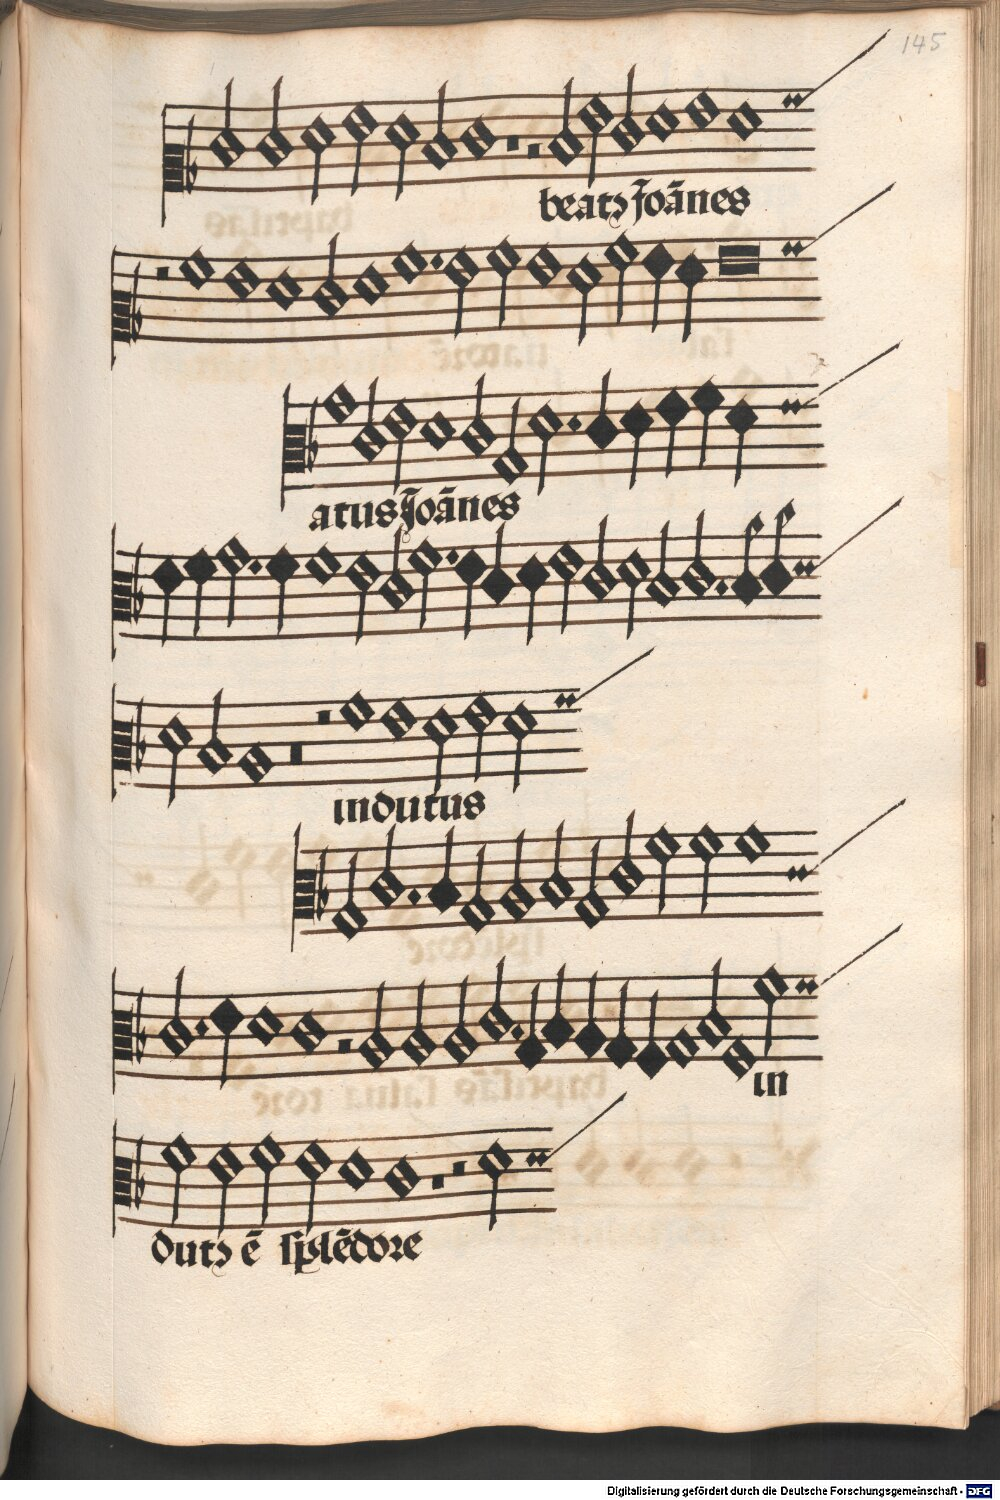 145
beatꝯ Joãnes
atus Joãnes
indutus
in
dutꝯ ẽ splẽdore
Digitalisierung gefördert durch die Deutsche Forschungsgemeinschaft - DFG